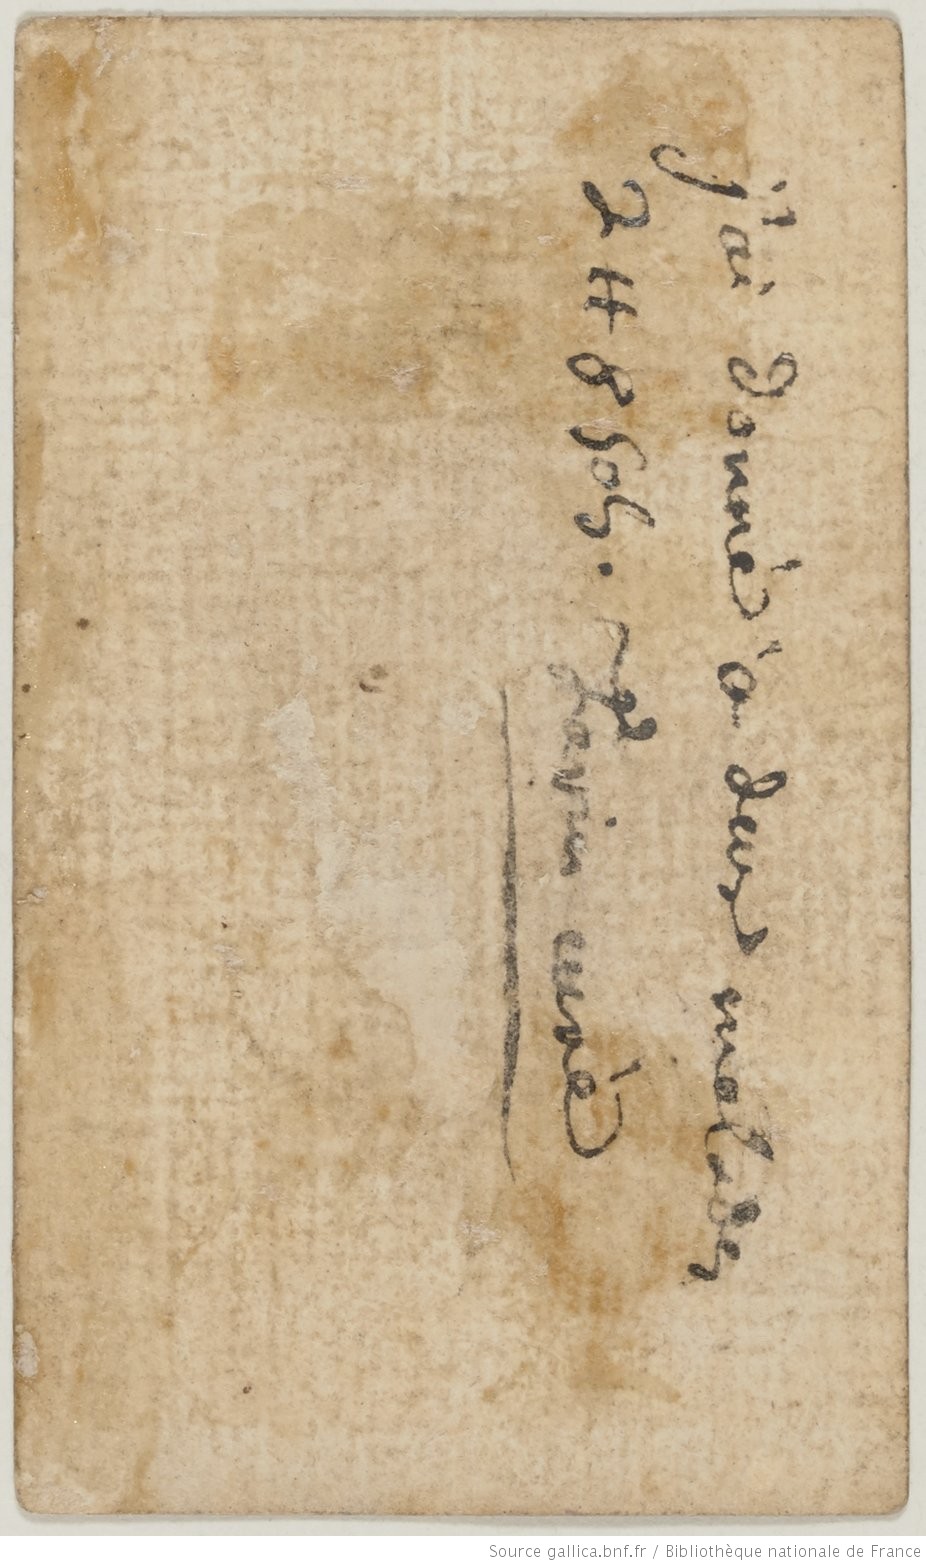 j'ai donné à deux malades
2 ⧺ 8 sols.
Favin curé
Source gallica.bnf.fr / Bibliothèque nationale de France